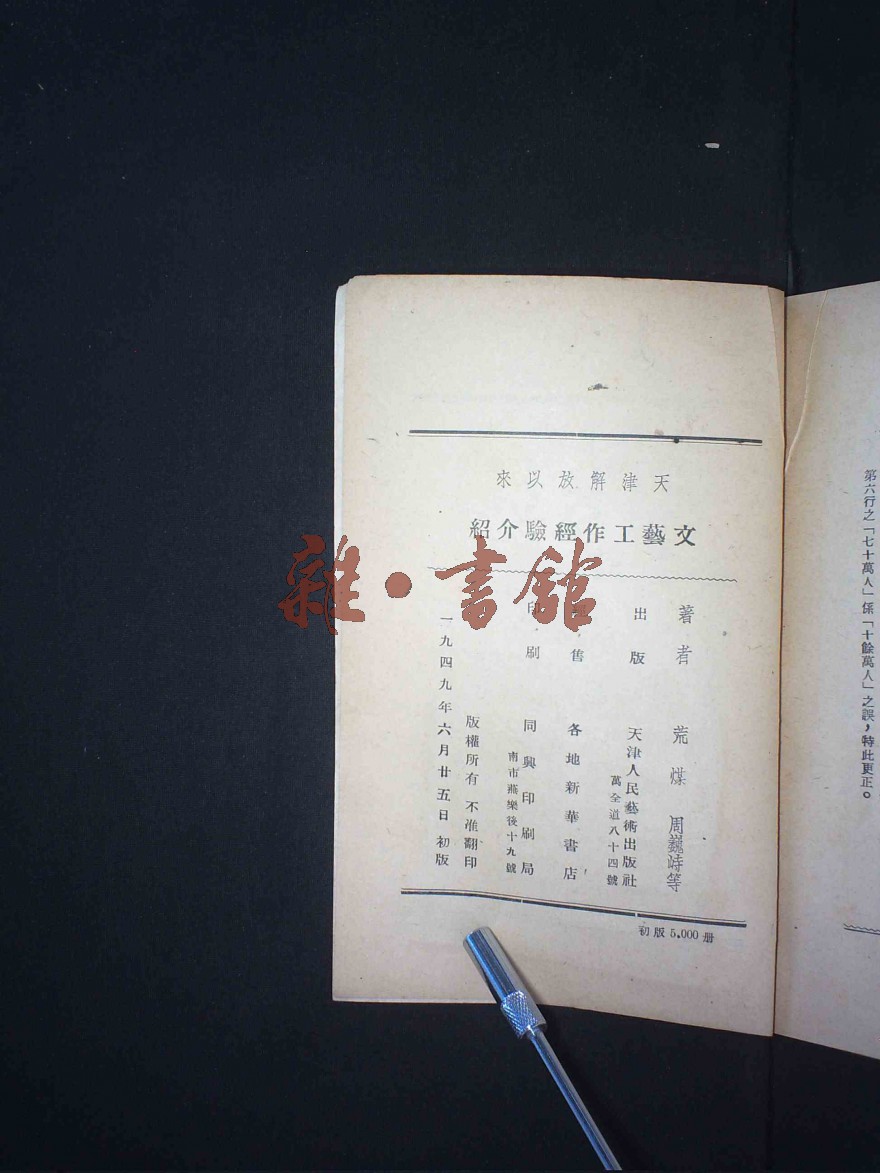 第六行之「七十萬人」係「十餘萬人」之誤，特此更正。
天津解放以來
文藝工作經驗介紹
著者 荒煤 周巍峙等
出版 天津人民藝術出版社
萬全道八十四號
售 各地新華書店
印刷 同興印刷局
南市燕樂後十九號
版權所有 不准翻印
一九四九年六月廿五日初版
初版5.000册
雜·書館